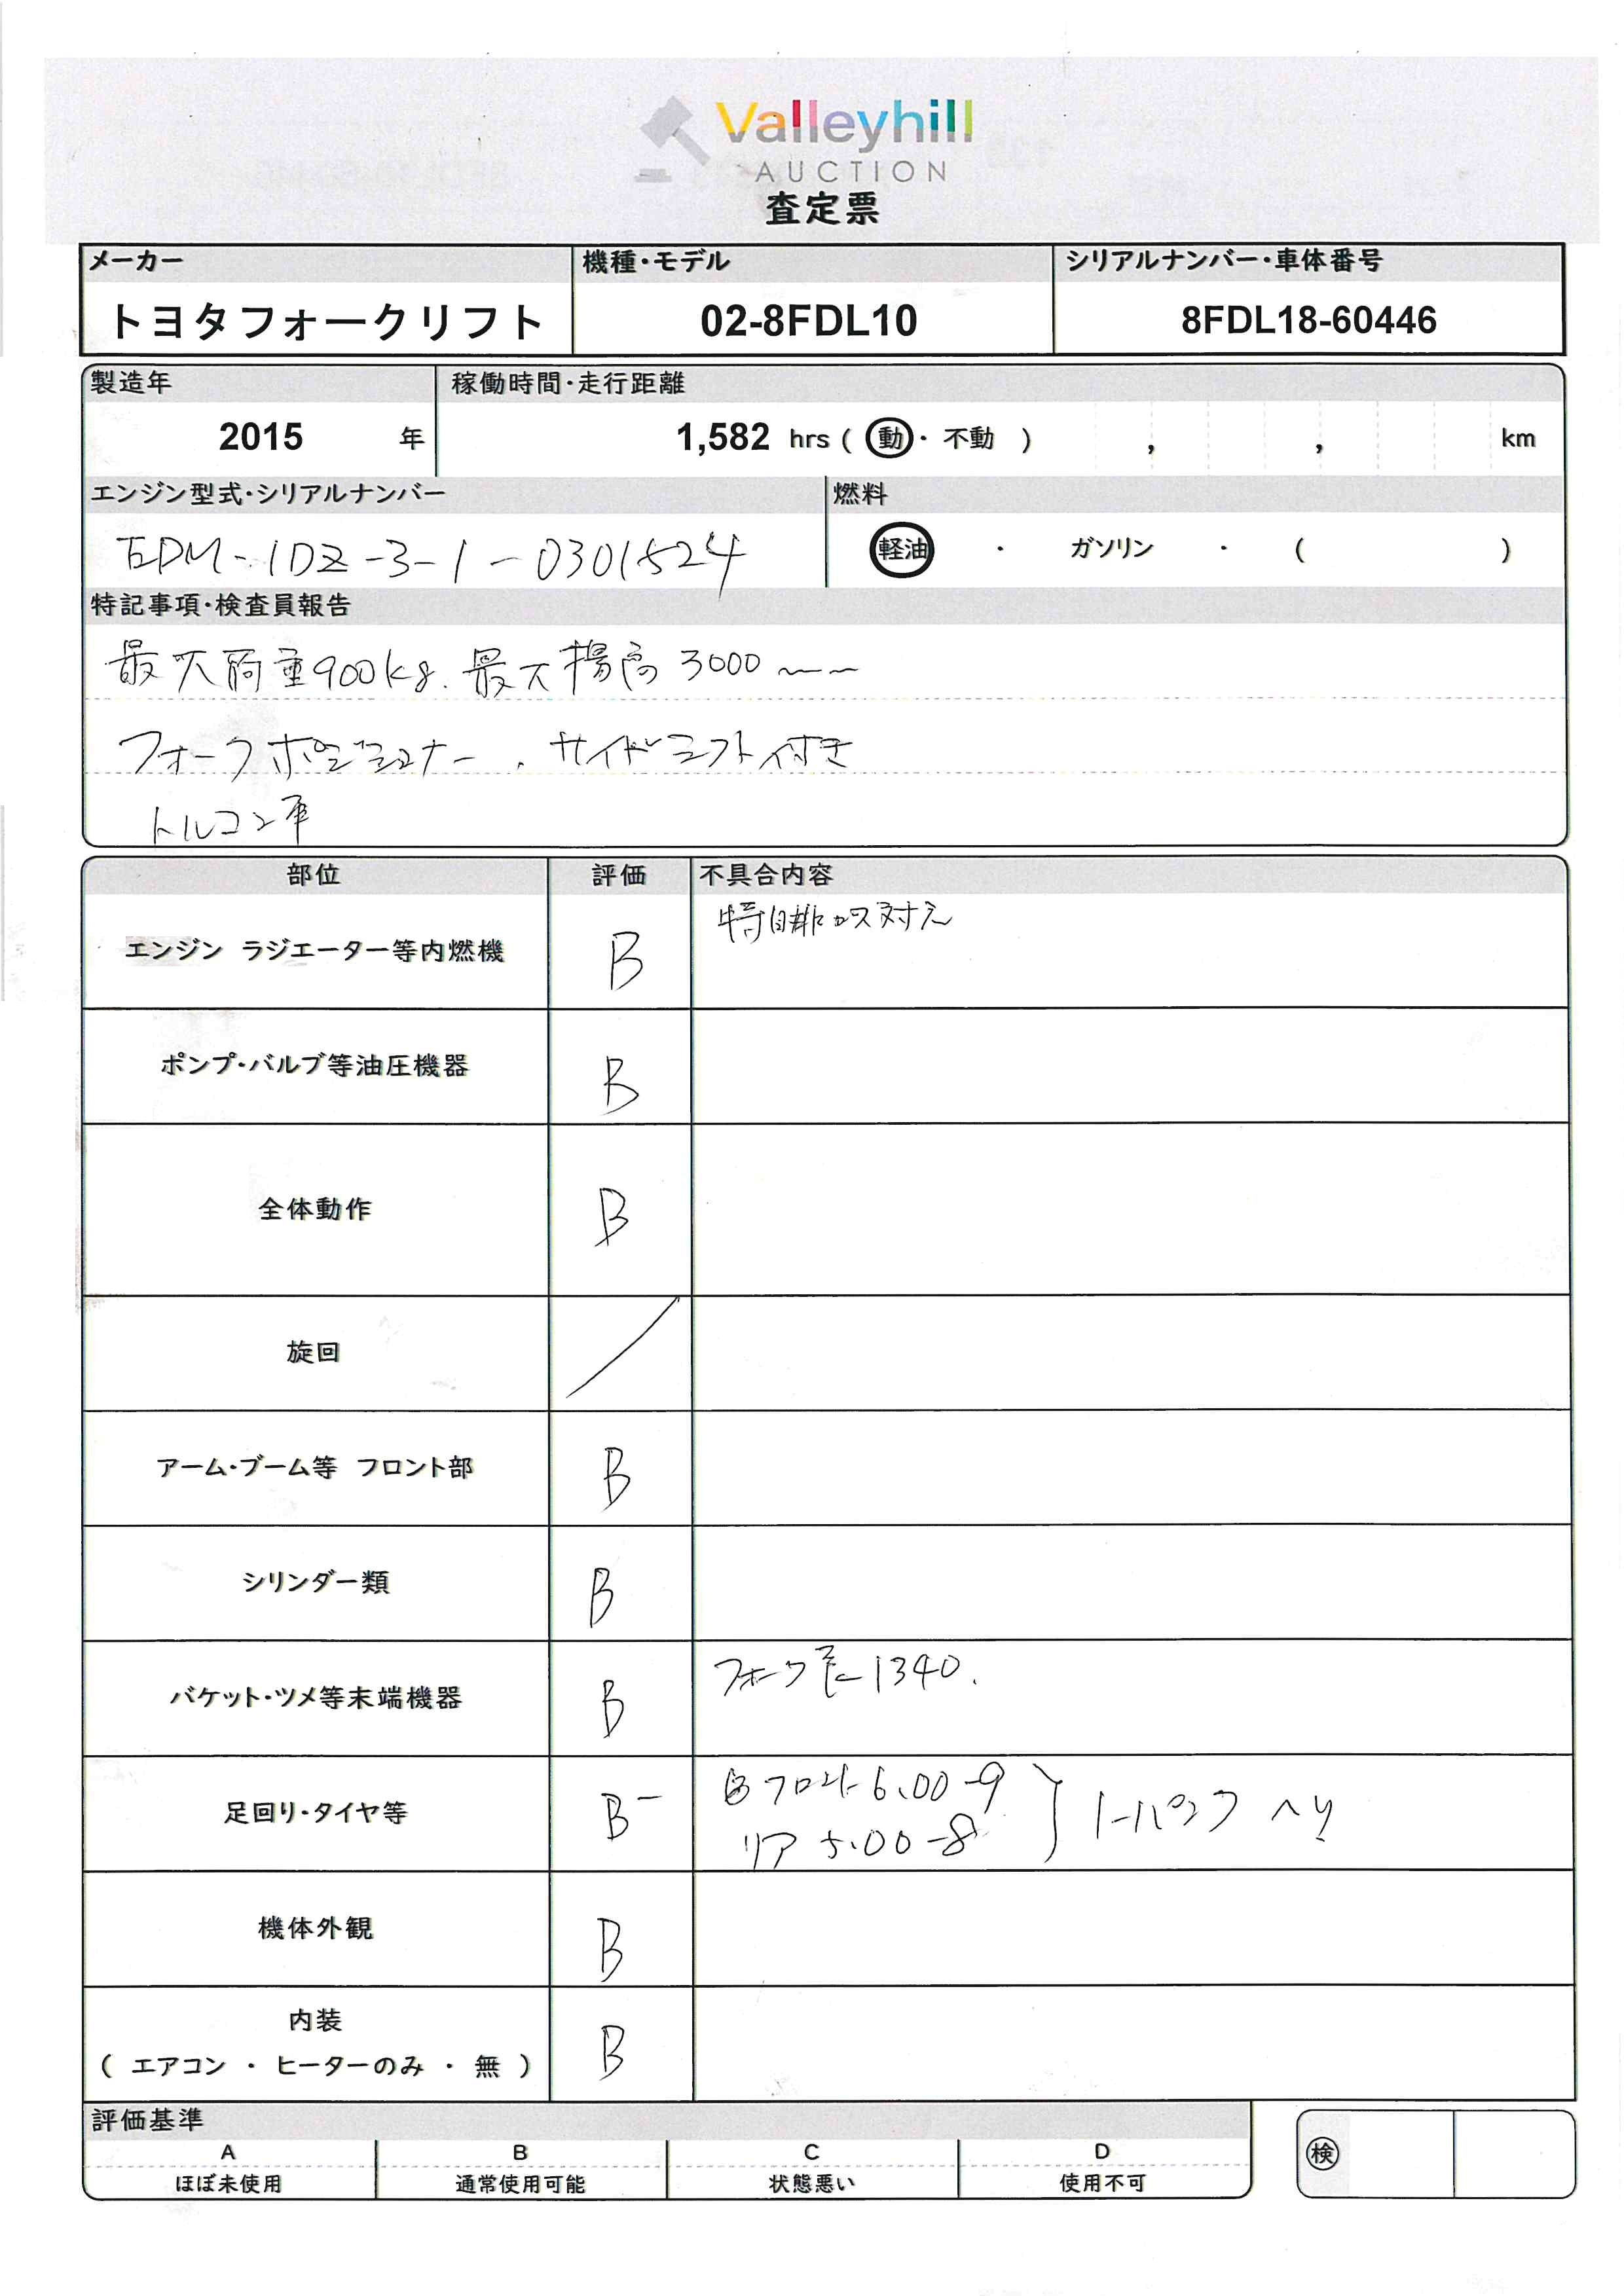 Valleyhill
AUCTION
査定票
メーカー 機種・モデル シリアルナンバー・車体番号
トヨタフォークリフト 02-8FDL10 8FDL18-60446
製造年 稼働時間・走行距離
2015 年 1,582 hrs ( 動 ・ 不動 ) , , km
エンジン型式・シリアルナンバー 燃料
EDM-1DZ-3-1-0301524 軽油 ・ ガソリン ・ ( )
特記事項・検査員報告
最大荷重900kg. 最大揚高 3000
フォークポジショナー、サイドシフト付き
トルコン車
部位 評価 不具合内容
特自排ガス対え
エンジン ラジエーター等内燃機 B
ポンプ・バルブ等油圧機器 B
全体動作 B
旋回
アーム・ブーム等 フロント部 B
シリンダー類 B
フォーク長1340.
バケット・ツメ等末端機器 B
フロント 6.00-9
足回り・タイヤ等 B- ノーパンク ヘリ
リア 5.00-8
機体外観 B
内装
( エアコン ・ ヒーターのみ ・ 無 ) B
評価基準
A B C D 検
ほぼ未使用 通常使用可能 状態悪い 使用不可